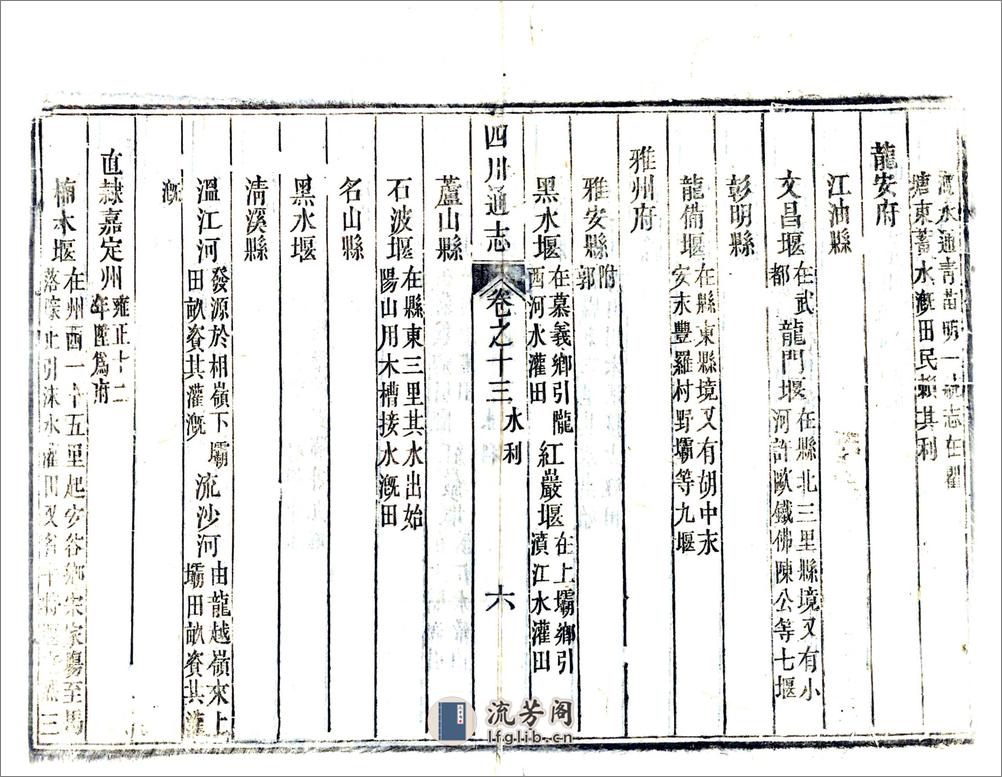 水通青苗明一志在
塘東蓄水溉田民賴其利
龍安府
江油縣
文昌堰在武都 龍門堰在縣北三里縣境又有小河許歐鐵佛陳公等七堰
彰明縣
龍備堰在縣東縣境又有胡中永安永豐羅村野壩等九堰
雅州府
雅安縣附郭
黑水堰在慕義鄉引隴西河水灌田 紅巖堰在上壩鄉引濆江水灌田
四川通志 卷之十三 水利 六
蘆山縣
石波堰在縣東三里其水出始陽山用木槽接水溉田
名山縣
黑水堰
清溪縣
溫江河發源於相嶺下壩田畝資其灌溉 流沙河由龍越嶺來上壩田畝資其灌
溉
直隸嘉定州雍正十二年陞為府
楠木堰在州西一十五里起安谷鄉宋家場至馬落止引沫水灌田又名三
流芳阁
lfglib.cn